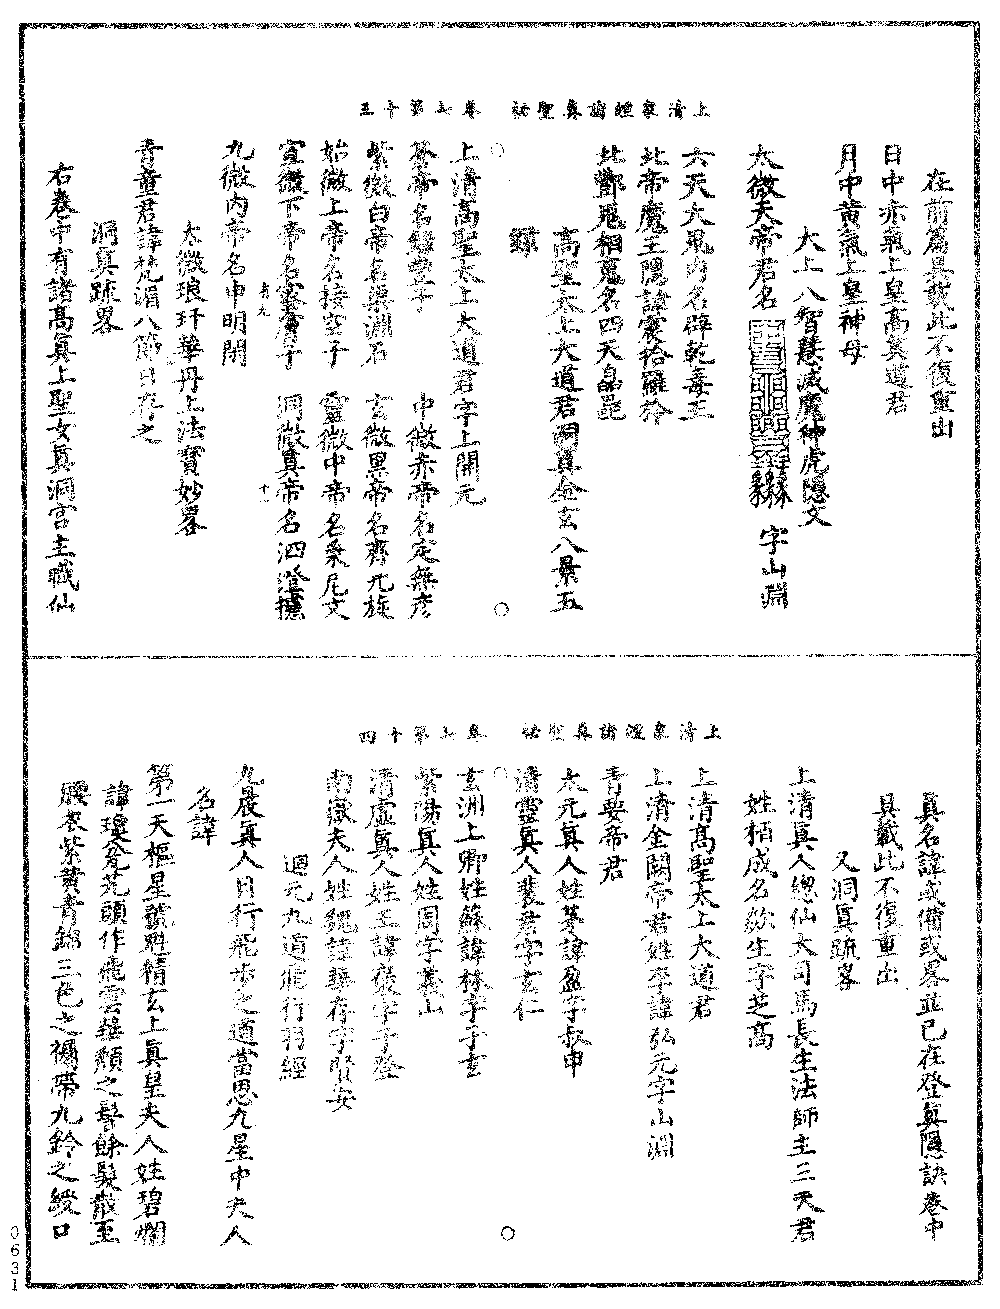 上清衆經諸真聖祕　卷七第十三
在前篇具載此不復重出
日中赤氣上皇高真道君
月中黃氣上皇神母
太上八智慧滅魔神虎隱文
太微天帝君名　字山淵
六天大鬼內名辟乾毒王
北帝魔王隱諱
北酆鬼相名四天
高聖太上大道君洞真金玄八景五
籙
上清高聖太上大道君字上開元
中微赤帝名定無彥
紫微白帝名渠淵石　玄微黑帝名齊元旋
始微上帝名接空子　靈微中帝名桑尼文
宣微下帝名　洞微真帝名泗澄
九微內帝名申明閉
太微琅玕華丹上法寶妙畧
青童君諱梵湄八節日存之
洞真疏畧
右卷中有諸高眞上聖女真洞宮主職仙
上清衆經諸真聖祕　卷七第十四
眞名諱或備或畧並已在登眞隱訣卷中
具載此不復重出
又洞眞疏畧
上清眞人總仙大司馬長生法師主三天君
姓栢成名欻生字芝高
上清高聖太上大道君
上清金闕帝君姓李諱弘元字山淵
青要帝君
太元真人姓茅諱盈字叔申
清靈眞人裴君字玄仁
玄洲上卿姓蘇諱林字子玄
紫陽真人姓周字義山
清虛真人姓王諱襃字子登
南嶽夫人姓魏諱華存字賢安
迴元九道飛行羽經
九晨眞人日行飛步之道當思九星中夫人
名諱
第一天樞星號魁精玄上真皇夫人姓碧爛
諱瓊頭作飛雲華頹之髻餘髮散至
腰衣紫黃青錦三色之帶九鈴之綬口
0631